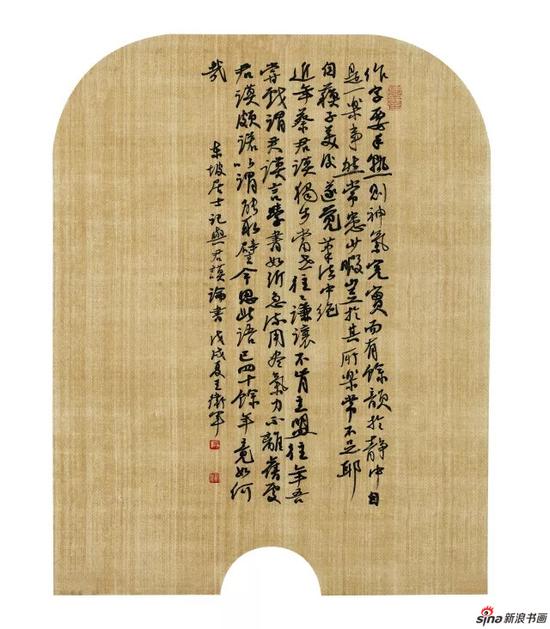 作字要手熟则神氣完實而有餘韻於静中自
是一樂事然常患少暇豈於其所樂常不足耶
自蘇子美死遂覺筆法中絶
近年蔡君謨獨步當世往往謙讓不肯主盟往年吾
嘗戲謂君謨言學書如泝急流用盡氣力不離舊處
君謨頗諾以謂能取譬今思此語已四十餘年竟如何
哉
東坡居士記與君謨論書戊戌夏王衛軍
sina新浪书画